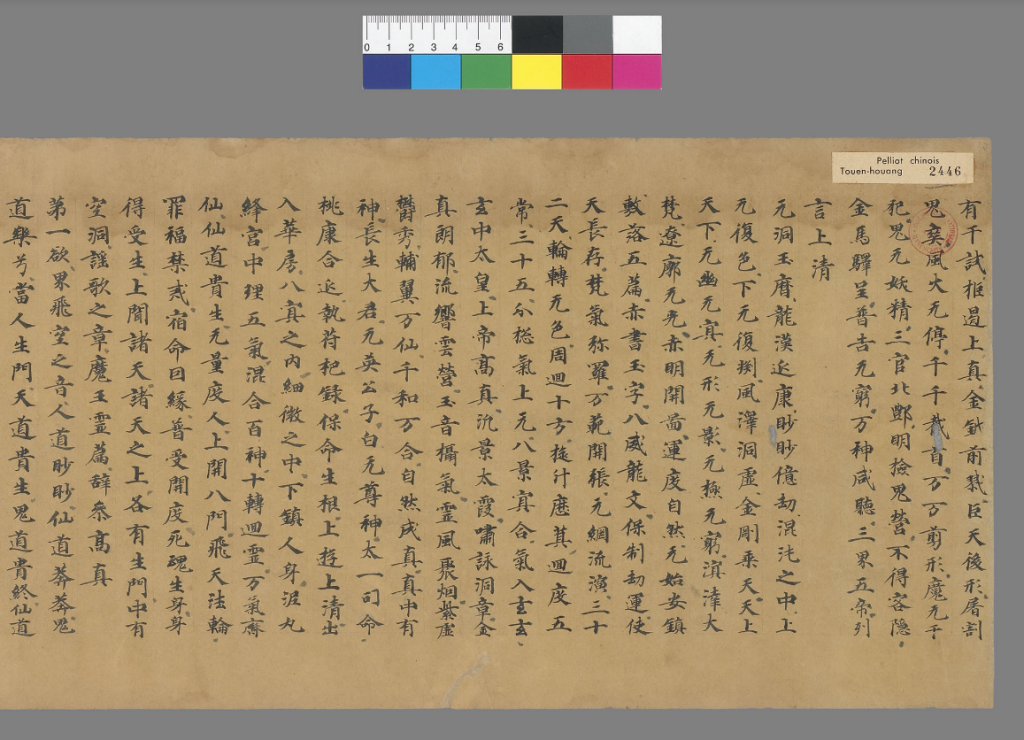 0 1 2 3 4 5 6
Pelliot chinois
Touen-houang 2446
有干試拒遏上真金鉞前戮巨天後形屠割
鬼爽風火无停千千截首万万剪形魔无干
犯鬼无妖精三官北酆明撿鬼營不得容隱
金馬驛呈普告无窮万神咸聽三界五帝列
言上清
元洞玉曆龍漢延康眇眇億劫混沌之中上
无復色下无復㴱風澤洞虛金剛乘天天上
天下无幽无冥无形无影无極无窮溟涬大
梵遼廓无光赤明開啚運度自然元始安鎮
敷落五篇赤書玉字八威龍文保制劫運使
天長存梵氣弥羅万範開張元綱流演三十
二天輪轉无色周迴十方旋汁歷其迴度五
常三十五分惣氣上元八景冥合氣入玄玄
玄中太皇上帝高真汎景太霞嘯詠洞章金
真朗郁流響雲營玉音攝氣靈風聚烟紫虛
欝秀輔翼万仙千和万合自然成真真中有
神長生大君无英公子白元尊神太一司命
桃康合延執苻把録保命生根上遊上清出
入華房八冥之內細微之中下鎮人身泥丸
絳宮中理五氣混合百神十轉迴靈万氣齊
仙仙道貴生无量度人上開八門飛天法輪
罪福禁戒宿命因緣普受開度死魂生身身
得受生上聞諸天諸天之上各有生門中有
空洞謠歌之章魔王靈篇辭參高真
第一欲界飛空之音人道眇眇仙道莽莽鬼
道樂兮當人生門天道貴生鬼道貴終仙道